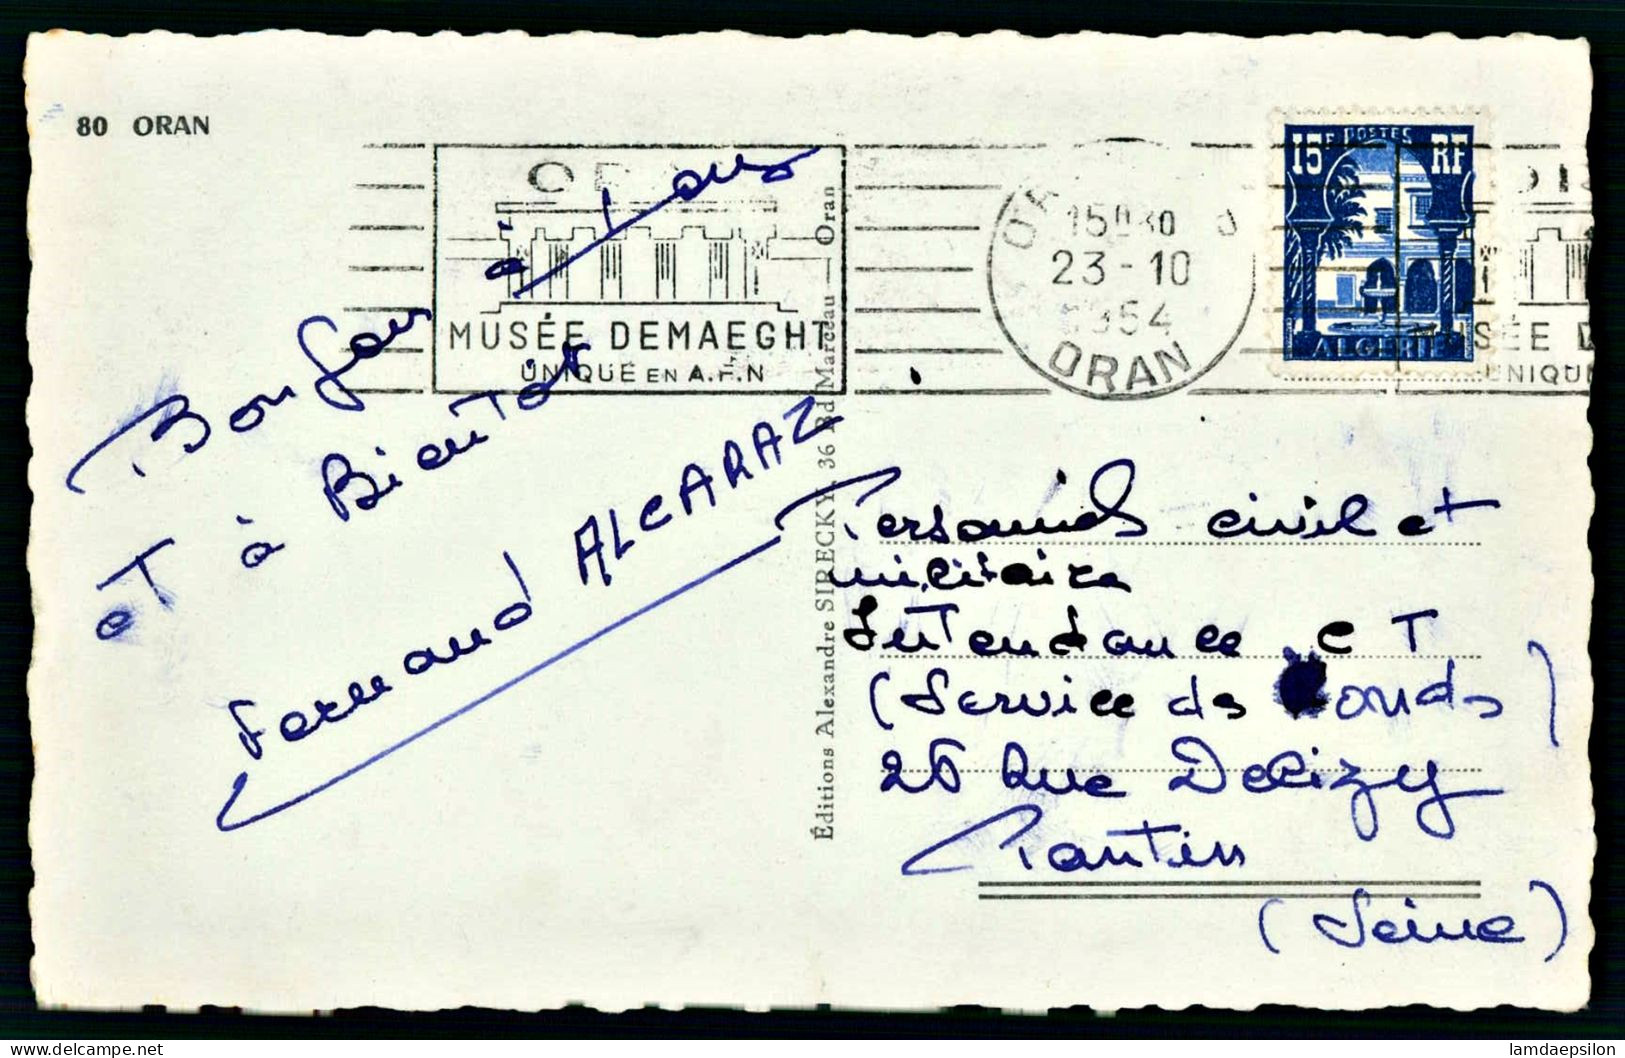 80 ORAN
Bonjour à tous
et à Bientôt
Fernand ALCARAZ
MUSÉE DEMAEGHT
UNIQUE EN A.F.N
15H30
23-10
1954
ORAN
15F POSTES RF
ALGERIE
MUSÉE D
UNIQU
Éditions Alexandre SIRECKY, 36 Bd Marceau — Oran
Personnels civil et
militaire
Intendance CT
(Service de Fonds)
26 Rue Delizy
Pantin
(Seine)
lamdaepsilon
delcampe.net